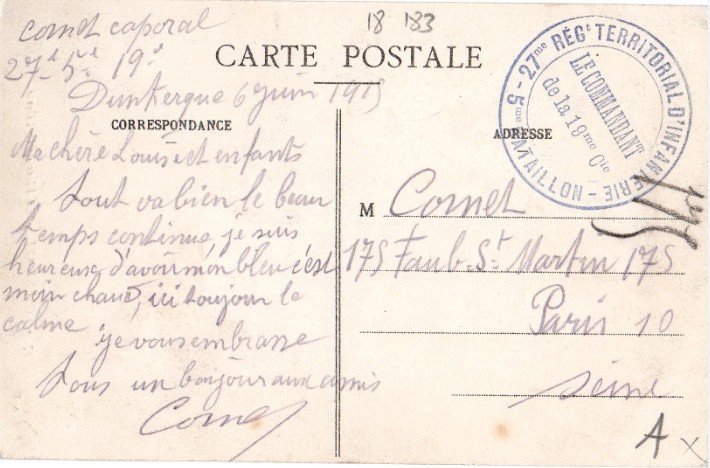 18 183
Cornet caporal
27e 5e 19e
CARTE POSTALE
Dunkerque 6 juin 1915
CORRESPONDANCE
ADRESSE
Ma chère Louise et enfants
tout va bien le beau
temps continue, je suis
heureuse d'avoir mon bleu c'est
moin chaud, ici toujour le
calme je vous embrasse
tous un bonjour aux amis
Cornet
M Cornet
175 Faub. St Martin 175
Paris 10
Seine
A x
5eme BATAILLON - 27me REGt TERRITORIAL D'INFANTERIE -
LE COMMANDANT
de la 19me Cie